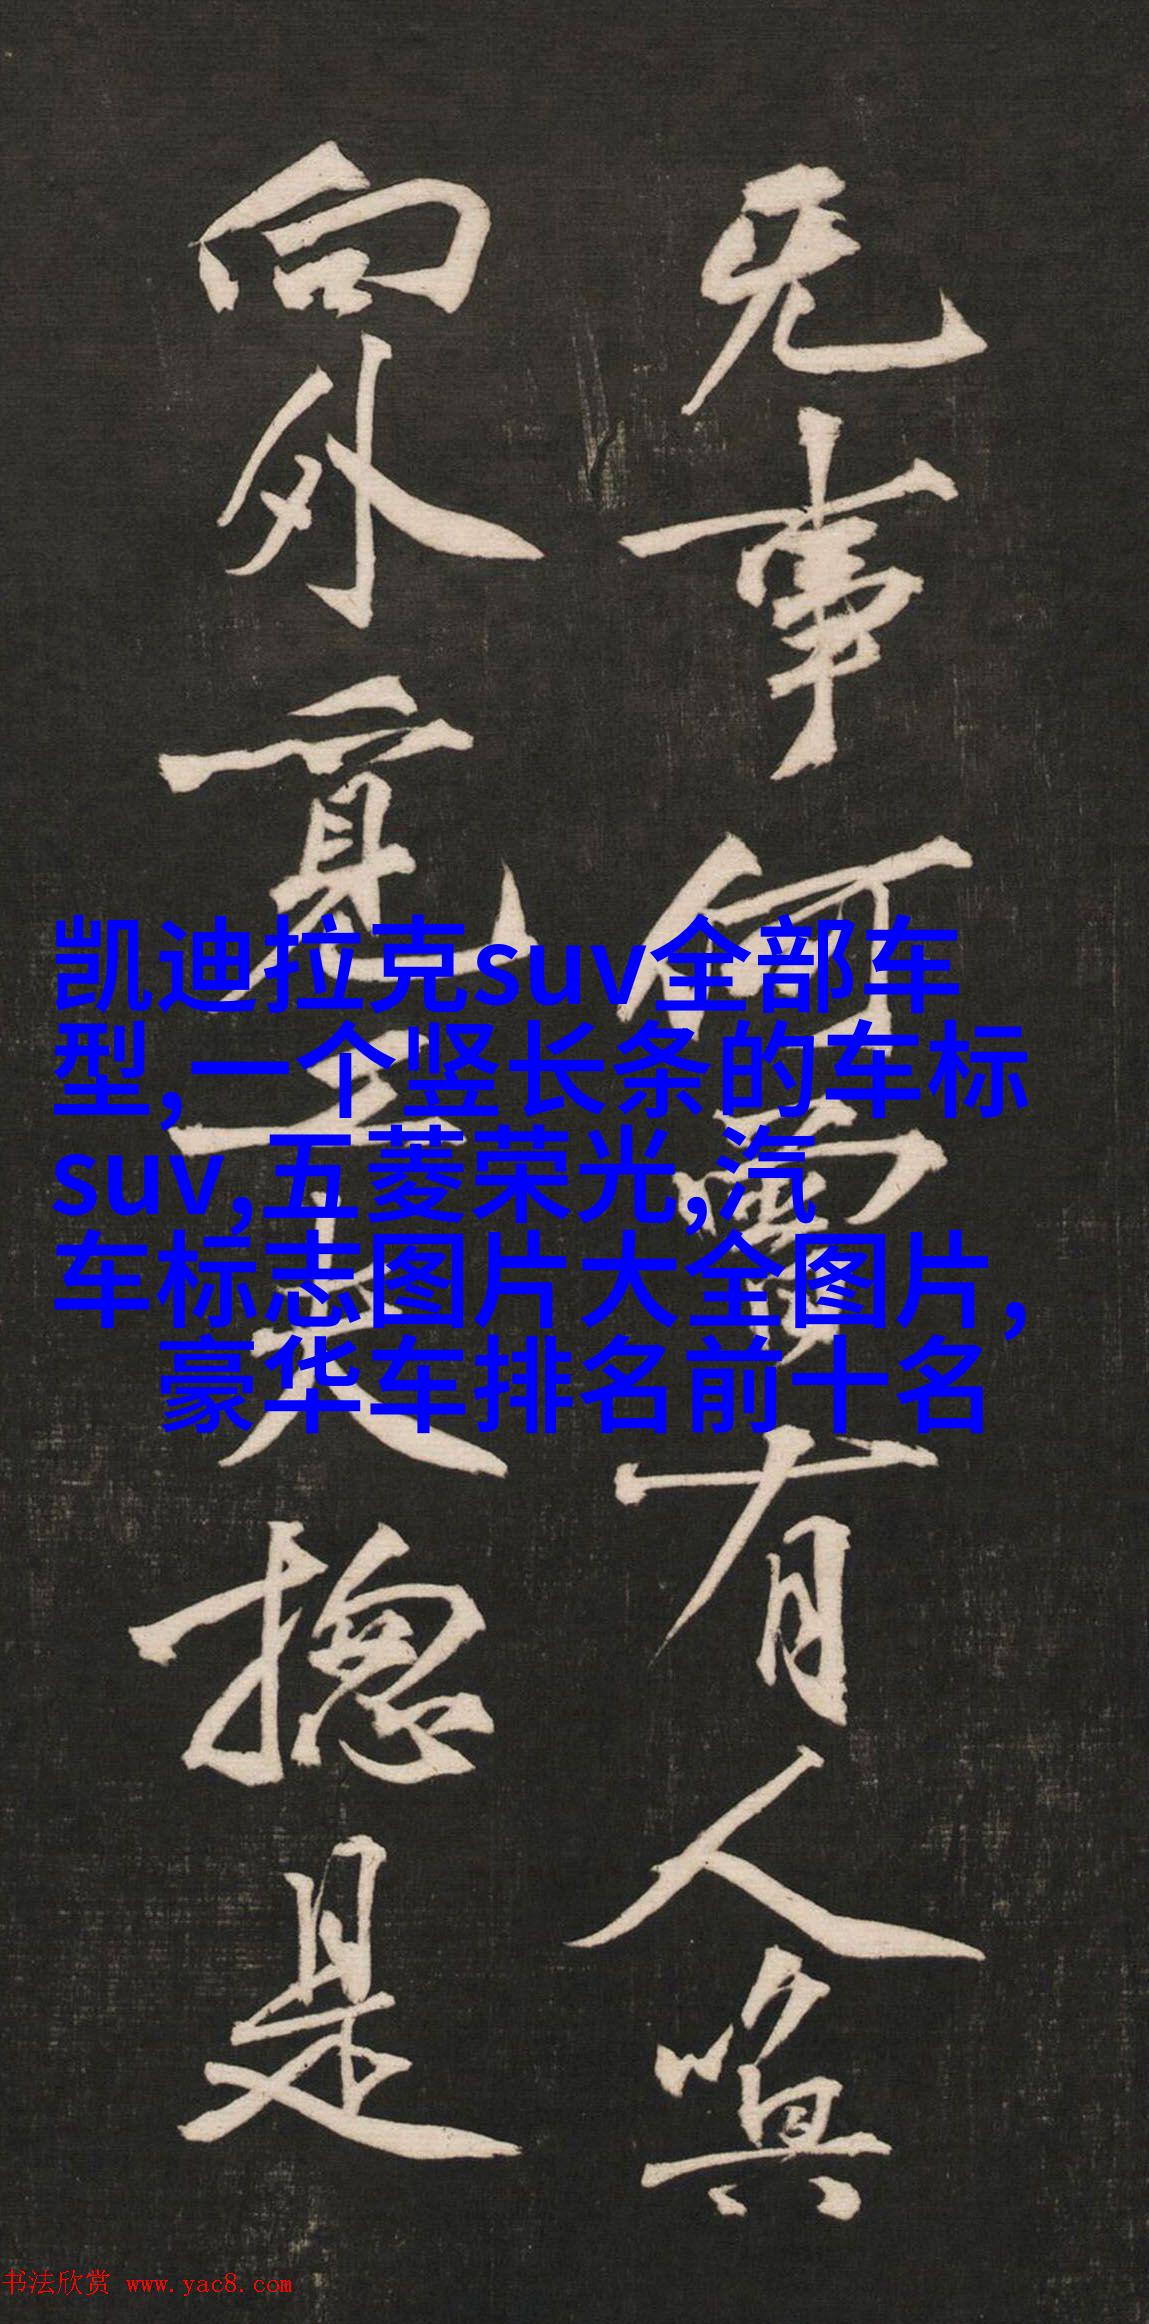 无事何有人唤
向外覓工夫揔是
凯迪拉克suv全部车
型,一个竖长条的车标
suv,五菱荣光,汽
车标志图片大全图片,
豪华车排名前十名
书法欣赏 www.yac8.com